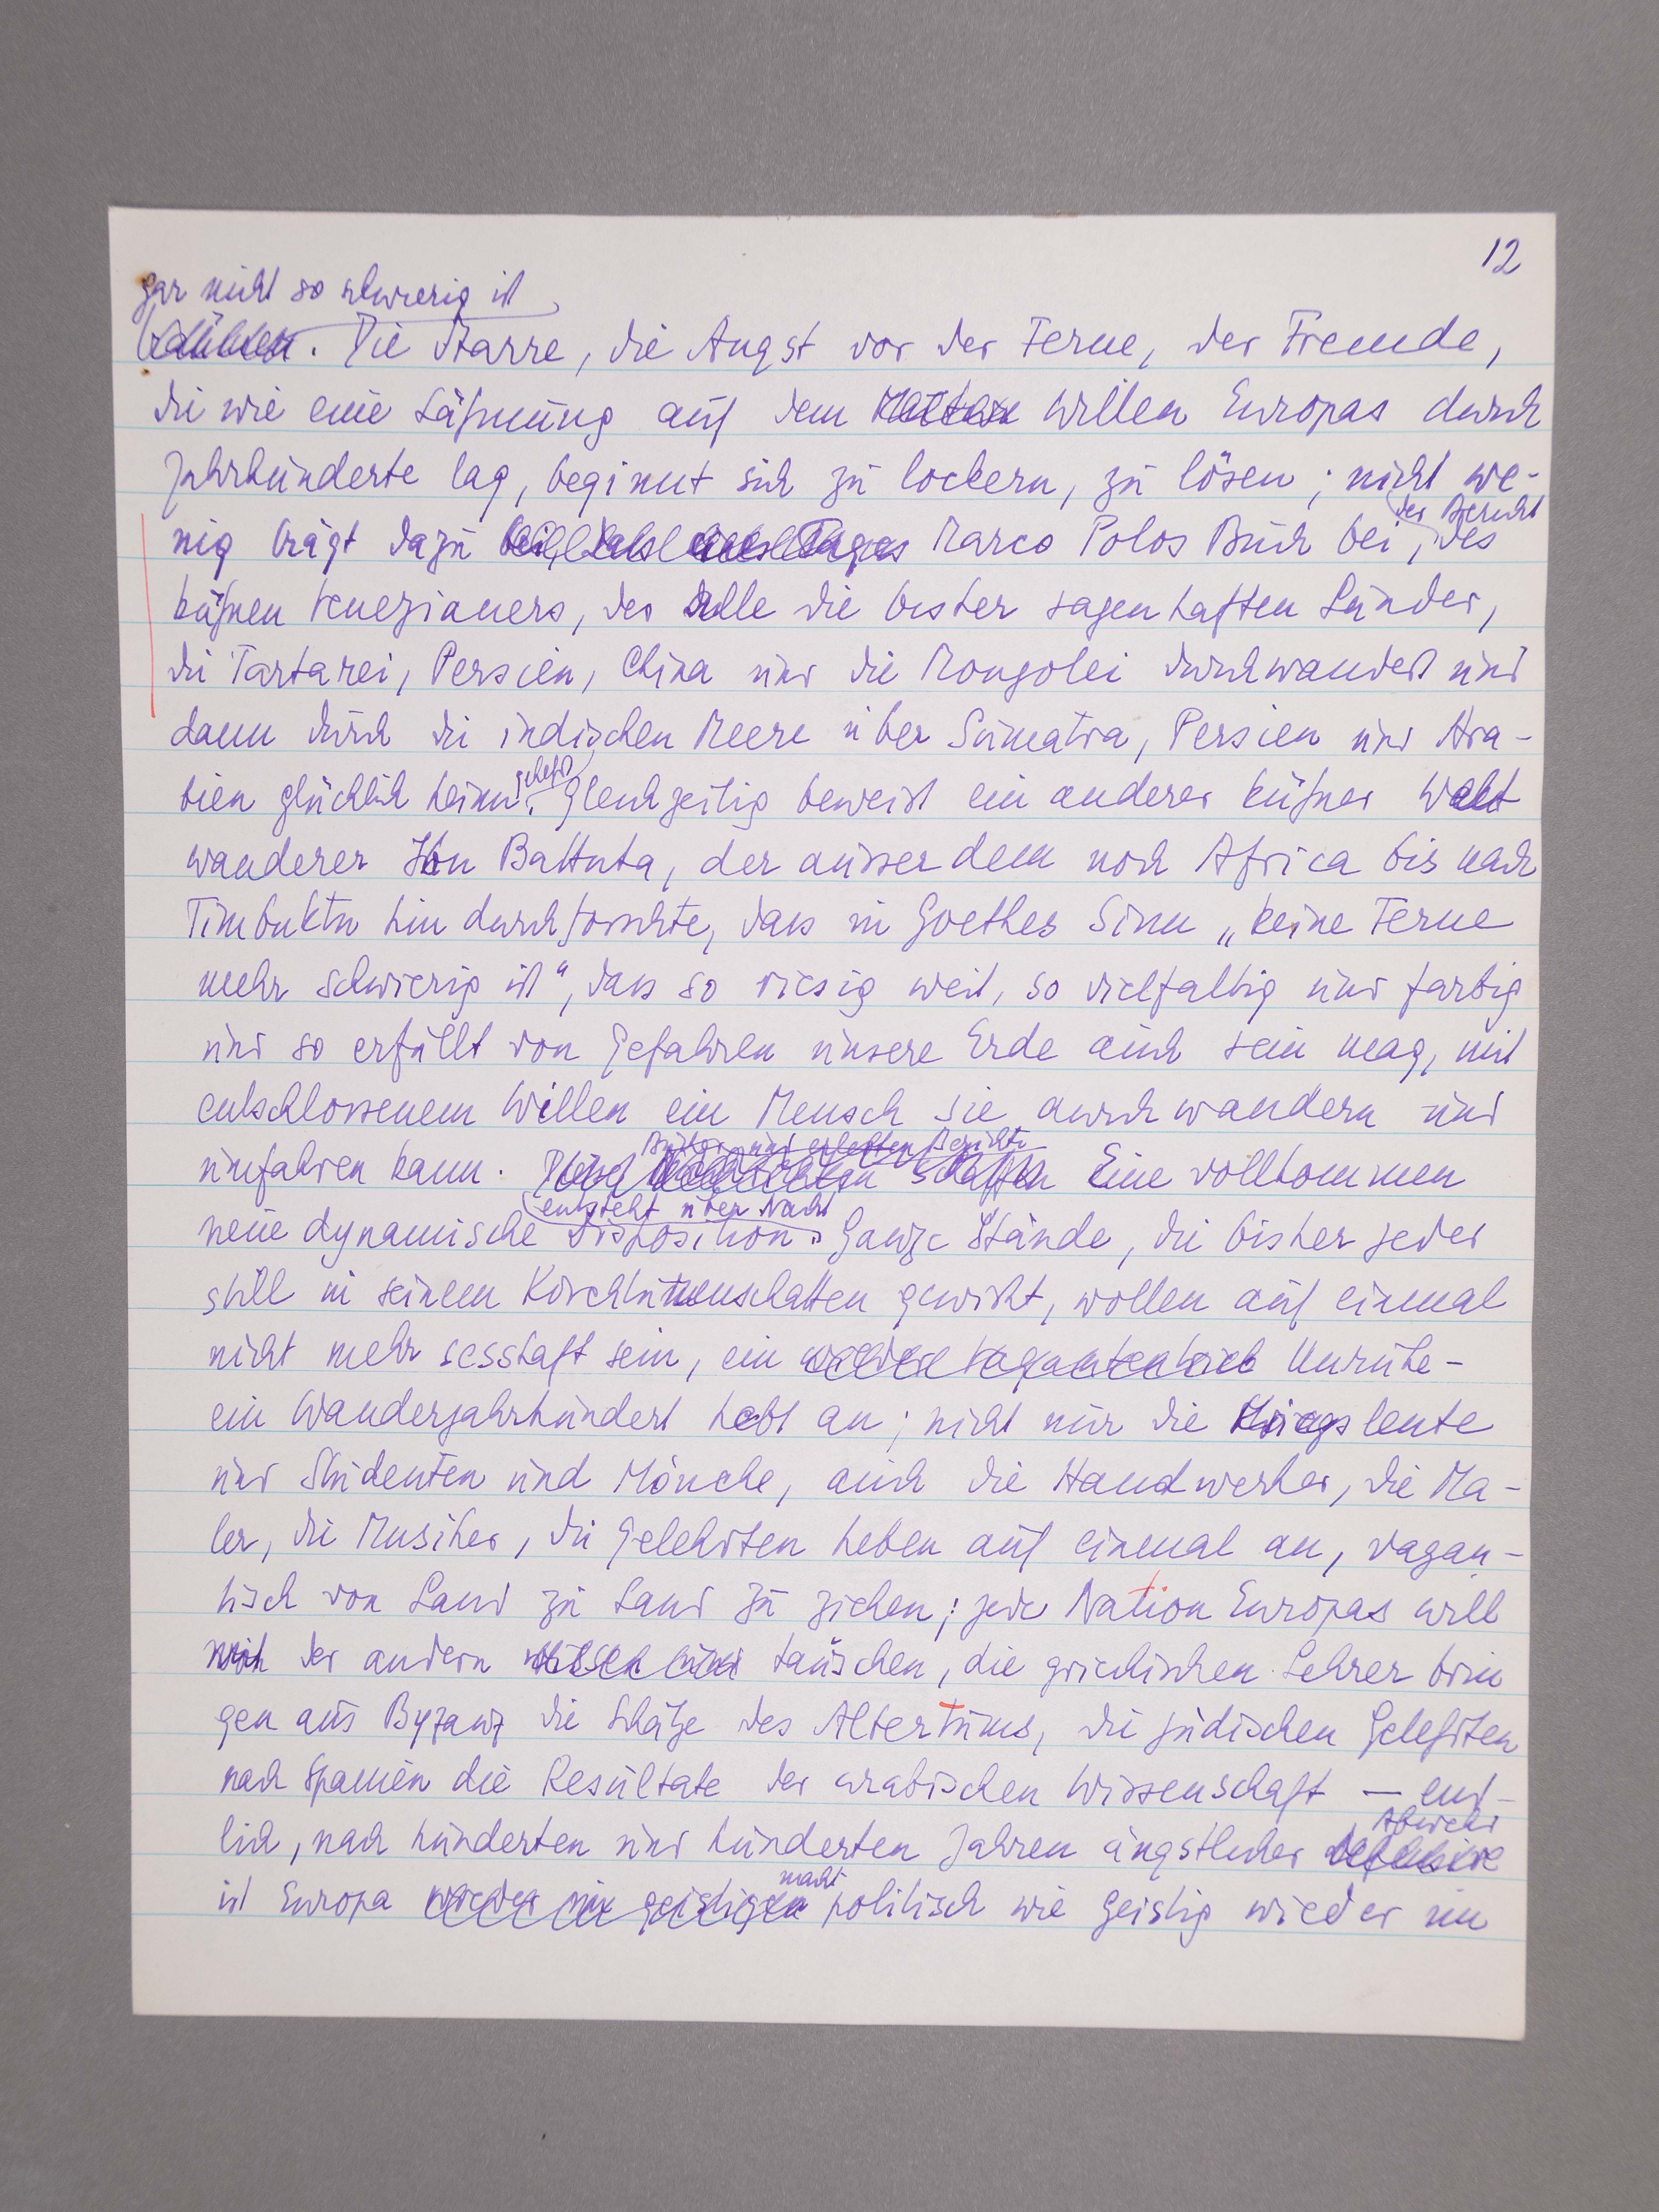 12
gar nicht so schwierig ist
. Die Starre, die Angst vor der Ferne, der Fremde,
die wie eine Lähmung auf dem Willen Europas durch
Jahrhunderte lag, beginnt sich zu lockern, zu lösen; nicht we-
der Bericht
nig trägt dazu Marco Polos Buch bei, des
kühnen Venezianers, der alle die bisher sagenhaften Länder,
die Tartarei, Persien, China und die Mongolei durchwandert und
dann durch die indischen Meere über Sumatra, Persien und Ara-
bien glücklich heimgekehrt. Gleichzeitig beweist ein anderer kühner Welt
wanderer Ibn Battuta, der ausserdem noch Africa bis nach
Timbuktu hin durchforschte, dass in Goethes Sinn „keine Ferne
mehr schwierig ist“, dass so riesig weit, so vielfaltig und farbig
und so erfüllt von Gefahren unsere Erde auch sein mag, mit
entschlossenem Willen ein Mensch sie durchwandern und
umfahren kann. Eine vollkommen
entsteht über Nacht
neue dynamische Disposition. Ganze Stände, die bisher jeder
still in seinem Kirchturmschatten gewirkt, wollen auf einmal
nicht mehr sesshaft sein, ein Unruhe-
ein Wanderjahrhundert hebt an; nicht nur die Kriegsleute
und Studenten und Mönche, auch die Handwerker, die Ma-
ler, die Musiker, die Gelehrten heben auf einmal an, vagan-
tisch von Land zu Land zu ziehen; jede Nation Europas will
mit der andern tauschen, die griechischen Lehrer brin
gen aus Byzanz die Schätze des Altertums, die jüdischen Gelehrten
nach Spanien die Resultate der arabischen Wissenschaft — end-
Abwehr
lich, nach hunderten und hunderten Jahren ängstlicher defensive
macht
ist Europa wieder geistigen politisch wie geistig wieder im